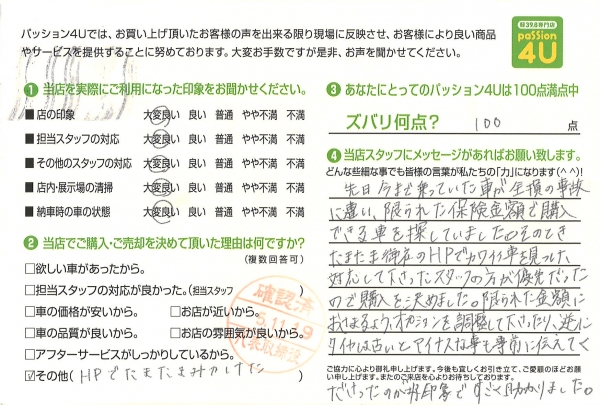 パッション4Uでは、お買い上げ頂いたお客様の声を出来る限り現場に反映させ、お客様により良い商品
やサービスを提供することに努めております。大変お手数ですが是非、お声を聞かせてください。
軽39.8専門店
passion
4U
❶ 当店を実際にご利用になった印象をお聞かせください。
■ 店の印象 大変良い 良い 普通 やや不満 不満
■ 担当スタッフの対応 大変良い 良い 普通 やや不満 不満
■ その他のスタッフの対応 大変良い 良い 普通 やや不満 不満
■ 店内・展示場の清掃 大変良い 良い 普通 やや不満 不満
■ 納車時の車の状態 大変良い 良い 普通 やや不満 不満
❷ 当店でご購入・ご売却を決めて頂いた理由は何ですか?
(複数回答可)
□欲しい車があったから。
□担当スタッフの対応が良かった。(担当スタッフ )
□車の価格が安いから。 □お店が近いから。
□車の品質が良いから。 □お店の雰囲気が良いから。
□アフターサービスがしっかりしているから。
☑その他( HPでたまたまみかけた )
確認済
11.19
代表取締役
❸ あなたにとってのパッション4Uは100点満点中
ズバリ何点? 100 点
❹ 当店スタッフにメッセージがあればお願い致します。
どんな些細な事でも皆様の言葉が私たちの「力」になります(^ ^)!
先日今まで乗っていた車が全損の事故
に遭い、限られた保険金額で購入
できる車を探していました。そのとき
たまたま御店のHPでカワイイ車を見つけ、
対応して下さったスタッフの方が優先だった
ので購入を決めました。限られた金額に
おさまるよう、オプションを調整して下さったり、逆に
タイヤは古いとマイナスな事も事前に伝えてく
ご協力に心より御礼申し上げます。今後も宜しくお引き立て、ご愛顧のほどお願
い申し上げます。またのご来店を心よりお待ちしております。
ださったのが好印象ですごく助かりました。